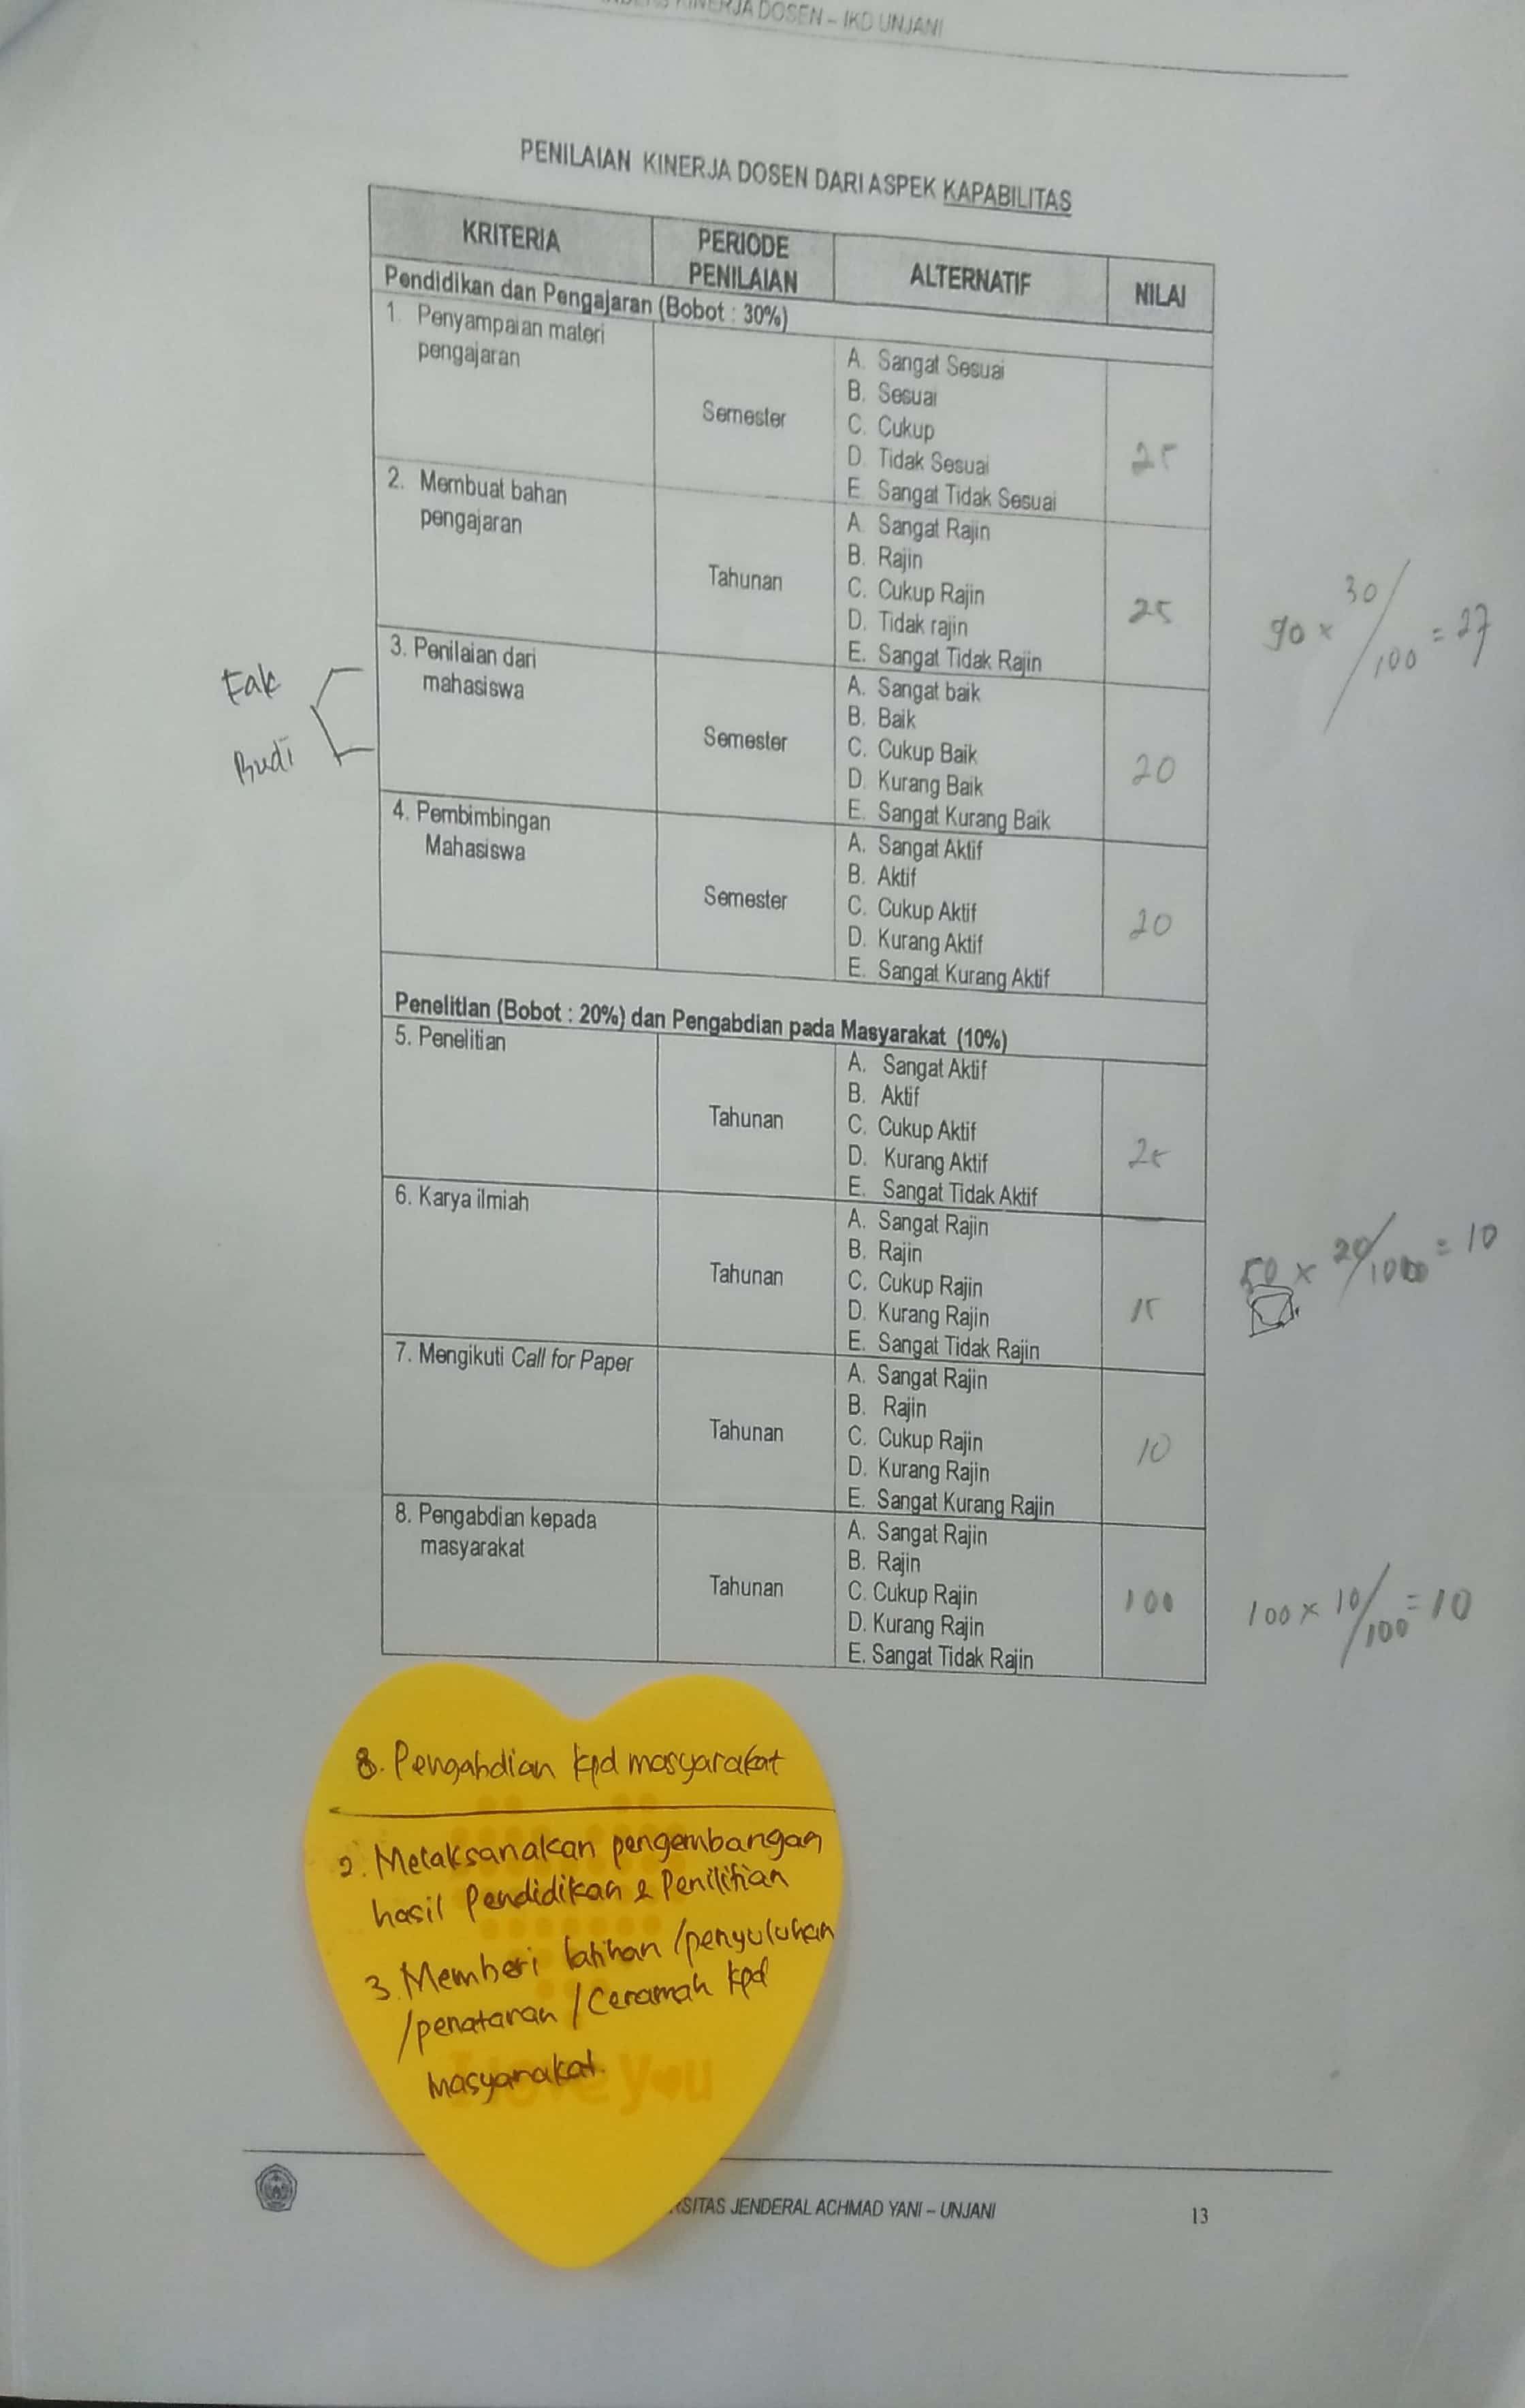 KINERJA DOSEN – IKD UNJANI
PENILAIAN KINERJA DOSEN DARI ASPEK KAPABILITAS
KRITERIA
PERIODE
PENILAIAN
ALTERNATIF
NILAI
Pendidikan dan Pengajaran (Bobot : 30%)
1. Penyampaian materi
pengajaran
Semester
A. Sangat Sesuai
B. Sesuai
C. Cukup
D. Tidak Sesuai
E. Sangat Tidak Sesuai
25
2. Membuat bahan
pengajaran
Tahunan
A. Sangat Rajin
B. Rajin
C. Cukup Rajin
D. Tidak rajin
E. Sangat Tidak Rajin
25
90 x 30/100 = 27
Fak
Budi
3. Penilaian dari
mahasiswa
Semester
A. Sangat baik
B. Baik
C. Cukup Baik
D. Kurang Baik
E. Sangat Kurang Baik
20
4. Pembimbingan
Mahasiswa
Semester
A. Sangat Aktif
B. Aktif
C. Cukup Aktif
D. Kurang Aktif
E. Sangat Kurang Aktif
20
Penelitian (Bobot : 20%) dan Pengabdian pada Masyarakat (10%)
5. Penelitian
Tahunan
A. Sangat Aktif
B. Aktif
C. Cukup Aktif
D. Kurang Aktif
E. Sangat Tidak Aktif
25
6. Karya ilmiah
Tahunan
A. Sangat Rajin
B. Rajin
C. Cukup Rajin
D. Kurang Rajin
E. Sangat Tidak Rajin
15
50 x 20/100 = 10
7. Mengikuti Call for Paper
Tahunan
A. Sangat Rajin
B. Rajin
C. Cukup Rajin
D. Kurang Rajin
E. Sangat Kurang Rajin
10
8. Pengabdian kepada
masyarakat
Tahunan
A. Sangat Rajin
B. Rajin
C. Cukup Rajin
D. Kurang Rajin
E. Sangat Tidak Rajin
100
100 x 10/100 = 10
8. Pengabdian kpd masyarakat
2. Melaksanakan pengembangan
hasil Pendidikan & Penilitian
3. Memberi latihan /penyuluhan
/penataran /Ceramah kpd
masyarakat.
I love you
SITAS JENDERAL ACHMAD YANI – UNJANI
13